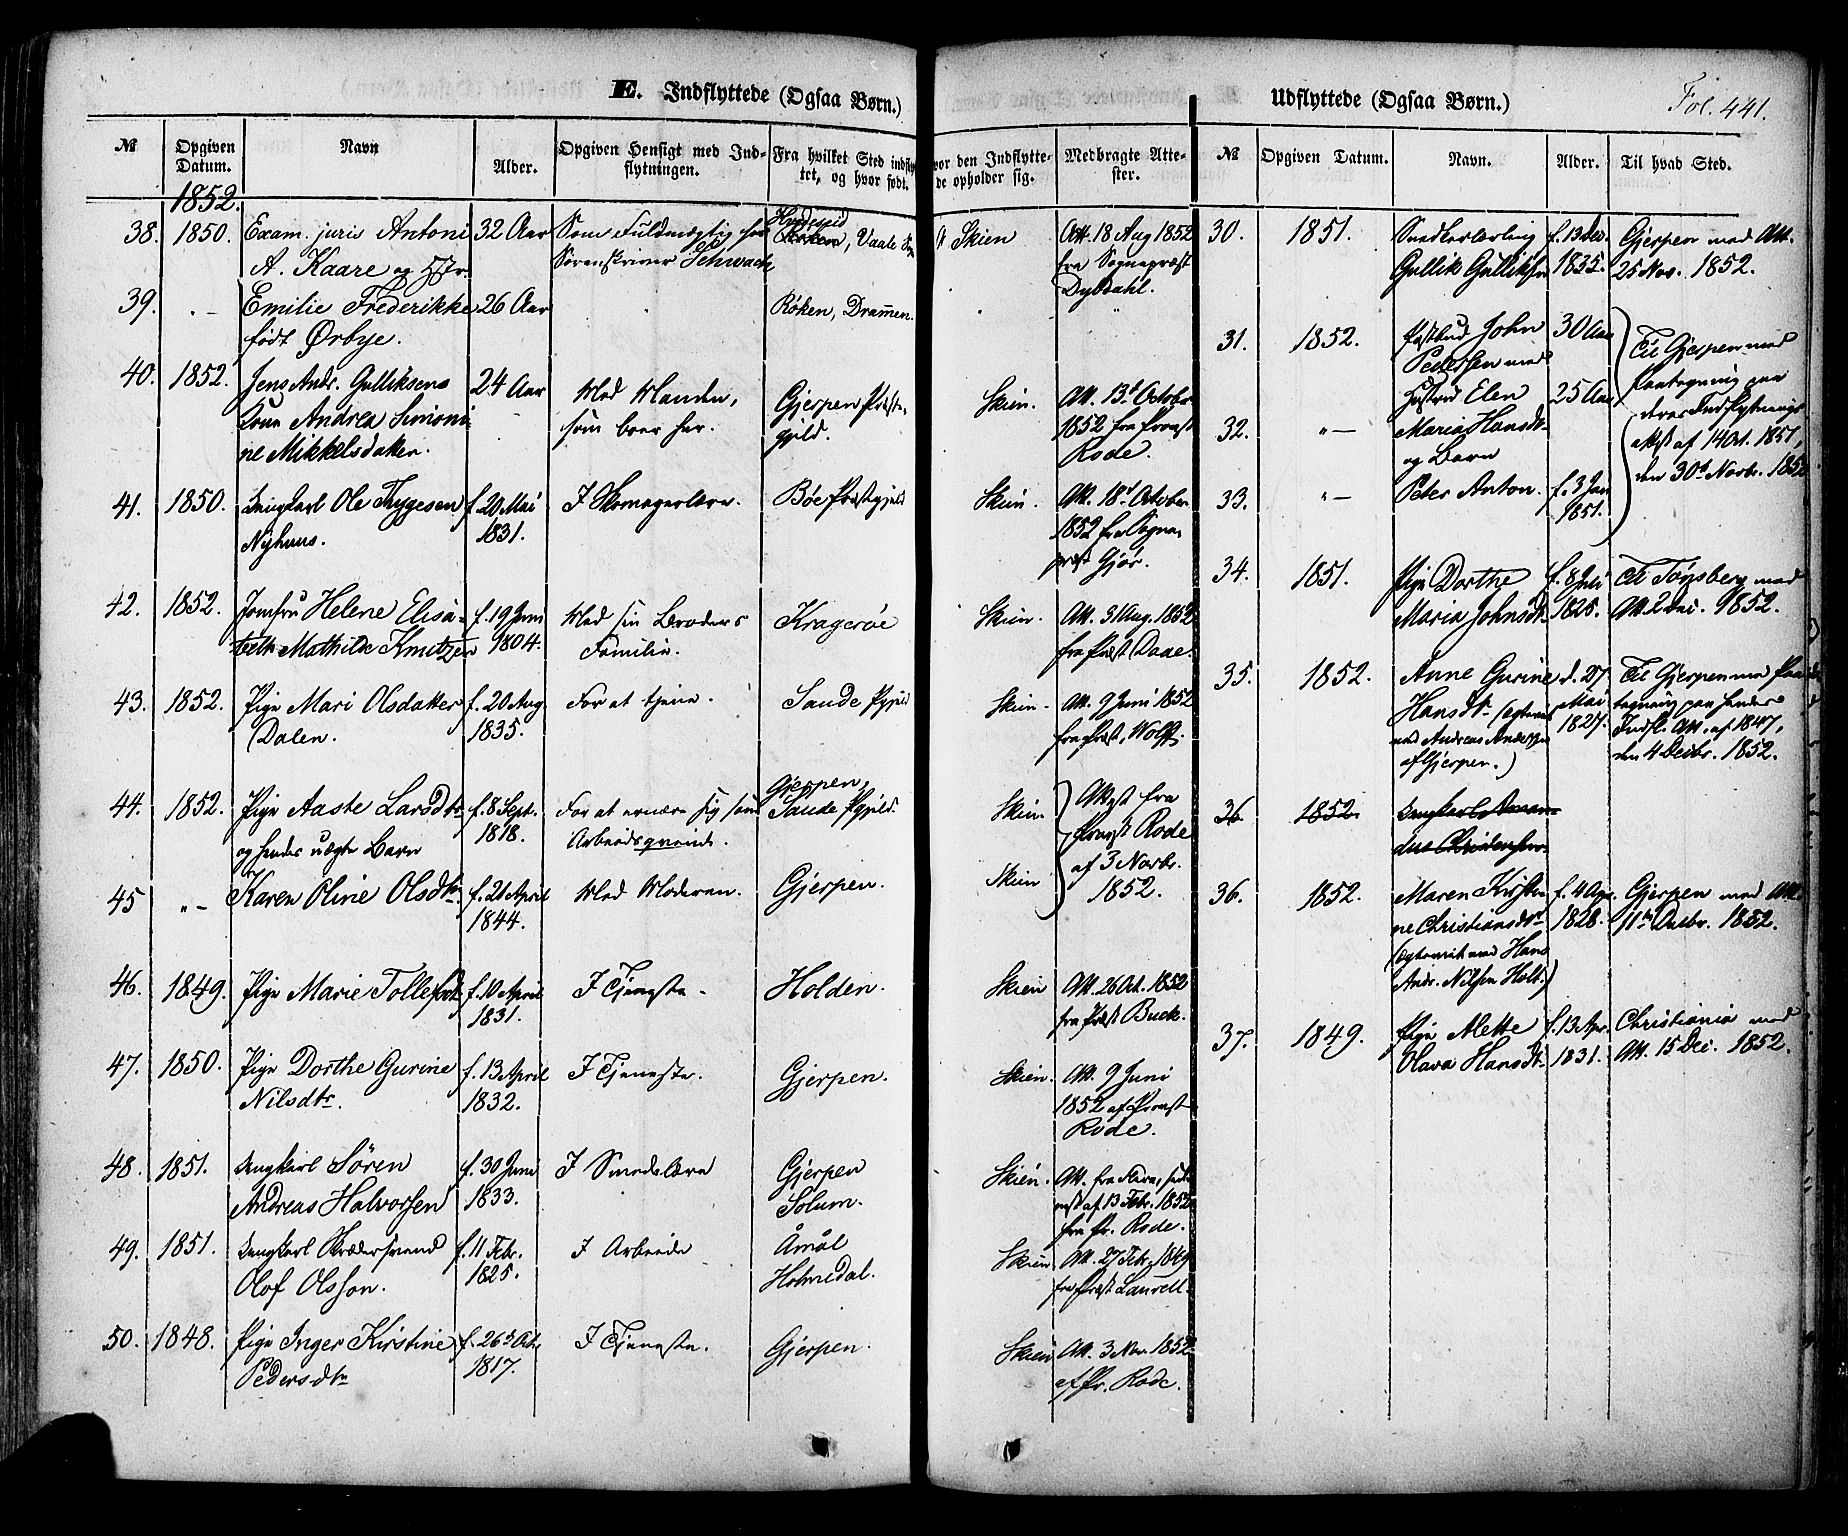 E. Indflyttede (Ogsaa Børn.)
№ Opgiven Datum. Navn Alder. Opgiven Hensigt med Indflytningen. Fra hvilket Sted indflyttet, og hvor født.
vor den Indflyttede opholder sig. Medbragte Attester.
1852.
38. 1850. Exam. juris Antoni 32 Aar Som Fuldmægtig hos Røken, Skien Att. 18 Aug 1852
A. Kaare og Hstr. Sorenskriver Schwach fra Sognepræst
Dybdahl.
39. -"- Emilie Frederikke 26 Aar " Røken, Drammen.
født Ørbye.
40. 1852. Jens Andr. Gulliksens 24 Aar Med Manden, Gjerpen Præste- Skien. Att. 13d October
Kone Andrea Simoni- som boer her. gjeld. 1852 fra Provst
ne Mikkelsdatter. Rode.
41. 1850. Ungkarl Ole Thygesen f. 20 Mai I Skomagerlære. Bøe Præstegjeld Skien. Att. 18d October
Nyhuus. 1831. 1852 fra Sogne-
præst Gjør.
42. 1852. Jomfru Helene Elisa- f. 19 Juni Med sin Broders Kragerøe Skien. Att. 31 Aug. 1852
beth Mathilde Knutzen 1804. Familie. fra Præst Daae.
43. 1852. Pige Mari Olsdatter f. 20 Aug. For at tjene. Sande Pgjeld Skien. Att. 9 Juni 1852
Dalen. 1835. fra Præst, Wolff.
44. 1852. Pige Aaste Larsdtr f. 8 Sept. For at ernære sig som Gjerpen, Sande Pgjeld. Skien. Attest fra
og hendes uægte Barn 1818. Arbeidsqvinde. Provst Rode
45 "- Karen Oline Olsdtr f. 21 April Med Moderen. Gjerpen. Skien af 3 Novbr.
1844. 1852.
46. 1849. Pige Marie Tollefsdtr f. 10 April I Tjeneste. Holden. Skien Att. 26 Oct. 1852
1831. fra Præst Buck.
47. 1850. Pige Dorthe Gurine f. 13 April I Tjeneste. Gjerpen. Skien. Att. 9 Juni
Nilsdtr. 1832. 1852 af Provst
Rode.
48. 1851. Ungkarl Søren f. 30 Juni I Smedelære Gjerpen Skien. Att. fra
Andreas Halvorsen 1833. Solum. af 13 Febr. 1852
fra Pr. Rode.
49. 1851. Ungkarl Skrædersvend f. 11 Febr. I Arbeide Åmål Skien Att. 27 Febr. 1849
Olof Olsson. 1825. Holmedal. fra Præst Laurell.
50. 1848. Pige Inger Kirstine f. 26d Oct. I Tjeneste. Gjerpen. Skien Att. 3 Nov. 1852
Pedersdtr 1817. af Pr. Rode.
Udflyttede (Ogsaa Børn.) Fol. 441.
№ Opgiven Datum. Navn. Alder. Til hvad Sted.
30. 1851. Snedkerlærling f. 13 Dec. Gjerpen med Att.
Gullik Gulliksen 1835. 25 Nov. 1852.
31. 1852. Postbud John 30 Aar Til Gjerpen med
Pedersen med Paategning paa
Hustru Elen 25 Aar deres Indflytnings-
32. "- Maria Hansdtr attest af 14 Oct. 1851,
og Barn den 30d Novbr. 1852
33. "- Peter Anton. f. 3 Jan
1851.
34. 1851. Pige Dorthe f. 8 Juli Til Tønsberg med
Maria Johnsdtr 1825. Att. 2 Dec. 1852.
35. 1852. Anne Gurine d. 27 Til Gjerpen med Paa-
Hansdtr (egteviet Mai tegning paa hendes
med Andreas Andersen 1827. Indfl. Att. af 1847,
af Gjerpen.) den 4 Decbr. 1852.
36 1852. Ungkarl Aman-
dus Christensen
36. 1852. Maren Kirsti- f. 4 Aug. Gjerpen med Att.
ne Christiansdtr 1828. 11te Decbr. 1852.
(egteviet med Hans
Andr. Nilsen Holt.)
37. 1849. Pige Mette f. 13 Apr. Christiania med
Olava Hansdtr 1831. Att. 15 Dec. 1852.